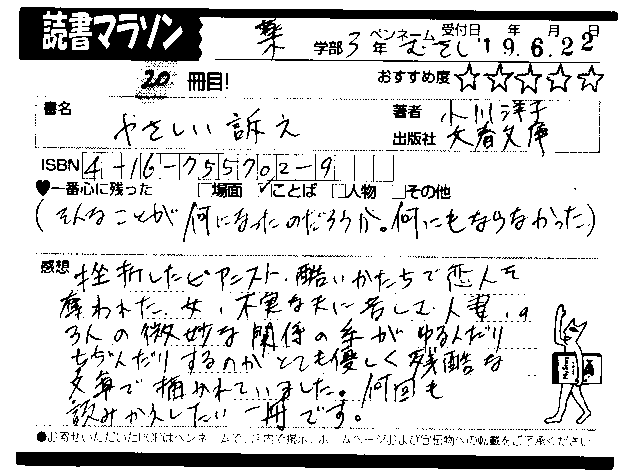 読書マラソン
薬 学部 3年 ペンネーム むさし 受付日 '19年 6月 22日
20 冊目! おすすめ度 ☆☆☆☆☆
書名 やさしい訴え 著者 小川洋子
出版社 文春文庫
ISBN 4-16-755702-9
♥一番心に残った □場面 ☑ことば □人物 □その他
(そんなことが何になったのだろうか。何にもならなかった)
感想 挫折したピアニスト、酷いかたちで恋人を
奪われた女、不実な夫に苦しむ人妻、の
3人の微妙な関係の糸がゆるんだり
ちぢんだりするのがとても優しく残酷な
文章で描かれていました。何回も
読みかえしたい一冊です。
●お寄せいただいたPOPはペンネームで、店内で掲示、ホームページおよび宣伝物への転載をご了承ください